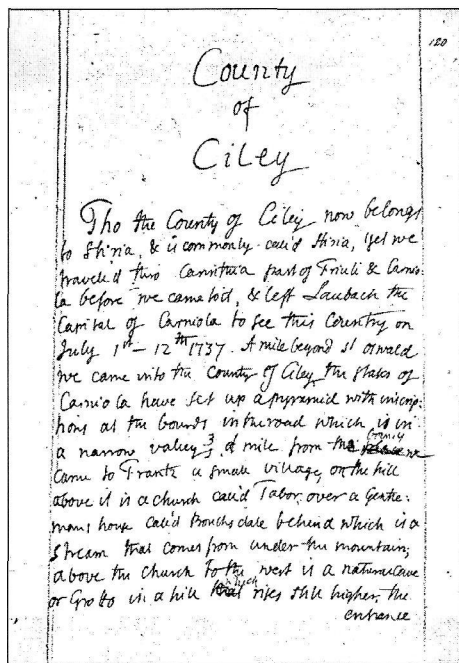 120
County
of
Ciley
Tho the County of Ciley now belongs
to Stiria, & is commonly call'd Stiria, yet we
travel'd thro Carinthia part of Friuli & Carnio:
la before we came to it, & left Laubach the
Capital of Carniola to see this Country on
July 1st - 12th 1737. A mile beyond St oswald
we came into the County of Ciley the states of
Carniola have set up a pyramid with inscrip:
tions at the bounds in the road which is in
a narrow valley, 3/4 of a mile from the bounds we
came to Frantz a small village, on the hill
above it is a church call'd Tabor over a Gentle:
mans house call'd behind which is a
stream that comes from under the mountain;
above the church to the west is a natural Cave
or Grotto in a hill which rises still higher, the
entrance